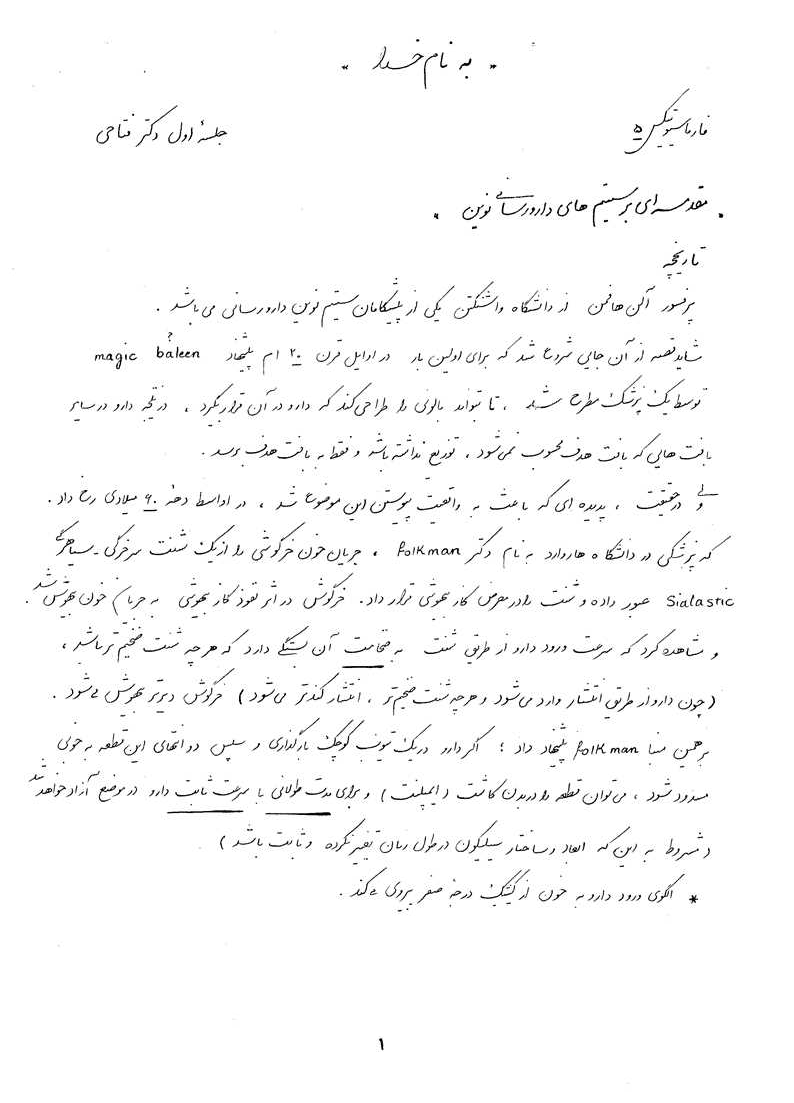 " به نام خدا "
فارماسیوتیکس ۵
جلسهٔ اول دکتر فتاحی
. مقدمه ای بر سیستم های دارورسانی نوین .
تاریخچه
پرفسور آلن هافمن از دانشگاه واشنگتن یکی از پیشگامان سیستم نوین دارورسانی می باشد .
شاید قصه از آن جایی شروع شد که برای اولین بار در اوایل قرن ۲۰ ام پیشنهاد magic baleen ؟
توسط یک پزشک مطرح شد ، تا بتواند بالونی را طراحی کند که دارو در آن قرار بگیرد ، در نتیجه دارو در سایر
بافت هایی که بافت هدف محسوب نمی شود ، توزیع نداشته باشد و فقط به بافت هدف برسد .
ولی در حقیقت ، پدیده ای که باعث به واقعیت پیوستن این موضوع شد ، در اواسط دههٔ ۶۰ میلادی رخ داد .
که پزشکی در دانشگاه هاروارد به نام دکتر folkman ، جریان خون خرگوشی را از یک شنت سرخرگی - سیاهرگی
Sialastic عبور داده و شنت را در معرض گاز بیهوشی قرار داد . خرگوش در اثر نفوذ گاز بیهوشی به جریان خون بیهوش شد .
و مشاهده کرد که سرعت ورود دارو از طریق شنت به ضخامت آن بستگی دارد که هر چه شنت ضخیم تر باشد ،
( چون دارو از طریق انتشار وارد می شود و هرچه شنت ضخیم تر ، انتشار کندتر می شود ) خرگوش دیرتر بیهوش می شود .
بر همین مبنا folkman پیشنهاد داد ؛ اگر دارو در یک تیوب کوچک بارگذاری و سپس دو انتهای این قطعه به خوبی
مسدود شود ، می توان قطعه را در بدن کاشت ( ایمپلنت ) و برای مدت طولانی با سرعت ثابت دارو در موضع آزاد خواهد شد
( مشروط به این که ابعاد و ساختار سیلیکون در طول زمان تغییر نکرده و ثابت باشد )
* الگوی ورود دارو به خون از کینتیک درجهٔ صفر پیروی می کند .
۱